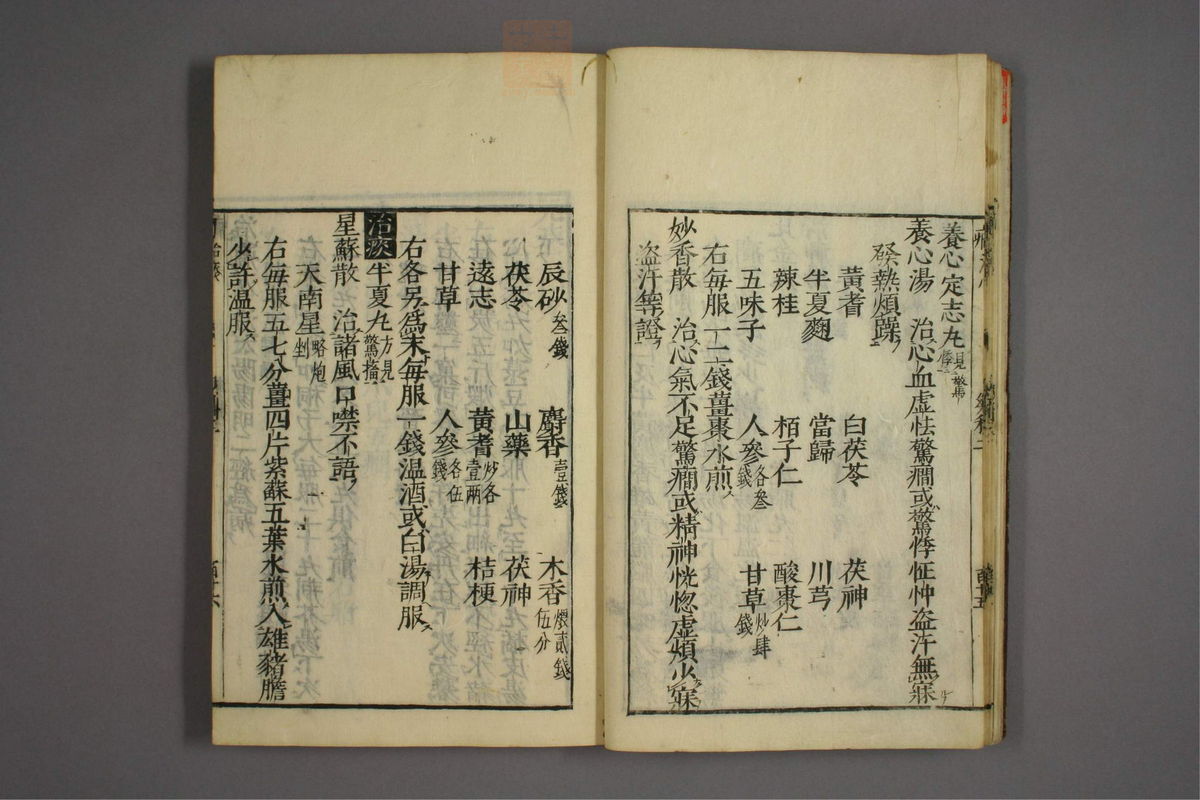 養心定志丸見驚悸
養心湯 治心血虛怯驚癇或驚悸怔忡盗汗無寐
發熱煩躁
黃耆 白茯苓 茯神
半夏麴 當歸 川芎
辣桂 栢子仁 酸棗仁
五味子 人參各叄錢 甘草炒肆錢
右每服一二錢薑棗水煎
妙香散 治心氣不足驚癇或精神恍惚虛煩少寐
盗汗等證
辰砂叄錢 麝香壹錢 木香煨貳錢伍分
茯苓 山藥 茯神
遠志 黃耆炒各壹兩 桔梗
甘草 人參各伍錢
右各另爲末每服一錢温酒或白湯調服
治痰半夏丸方見驚搐
星蘇散 治諸風口噤不語
天南星略炮剉
右每服五七分薑四片紫蘇五葉水煎入雄豬膽
少許温服